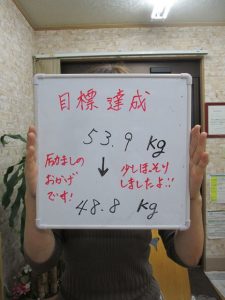 目標達成
53.9 kg
↓
励ましの
おかげ
です!
少しほっそり
しましたよ!!
48.8 kg